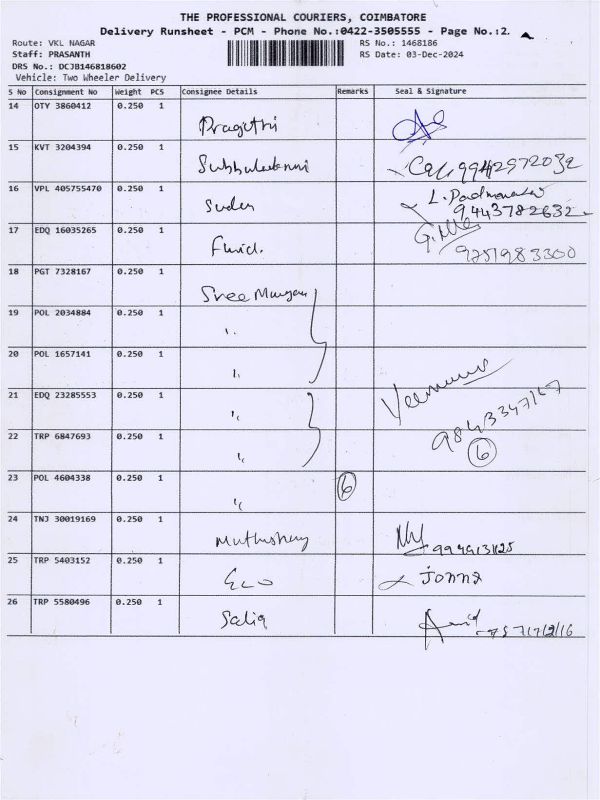 THE PROFESSIONAL COURIERS, COIMBATORE
Delivery Runsheet - PCM - Phone No.:0422-3505555 - Page No.:2
Route: VKL NAGAR
Staff: PRASANTH
DRS No.: DCJB146818602
Vehicle: Two Wheeler Delivery
RS No.: 1468186
RS Date: 03-Dec-2024
S No Consignment No Weight PCS Consignee Details Remarks Seal & Signature
14 OTY 3860412 0.250 1
15 KVT 3204394 0.250 1
16 VPL 405755470 0.250 1 L. Padmanaban
9443782632
17 EDQ 16035265 0.250 1
9751983300
18 PGT 7328167 0.250 1 Sree Murugan
19 POL 2034884 0.250 1 "
20 POL 1657141 0.250 1 "
21 EDQ 23285553 0.250 1 "
22 TRP 6847693 0.250 1 " 6
23 POL 4604338 0.250 1 " 6
24 TNJ 30019169 0.250 1
25 TRP 5403152 0.250 1
26 TRP 5580496 0.250 1